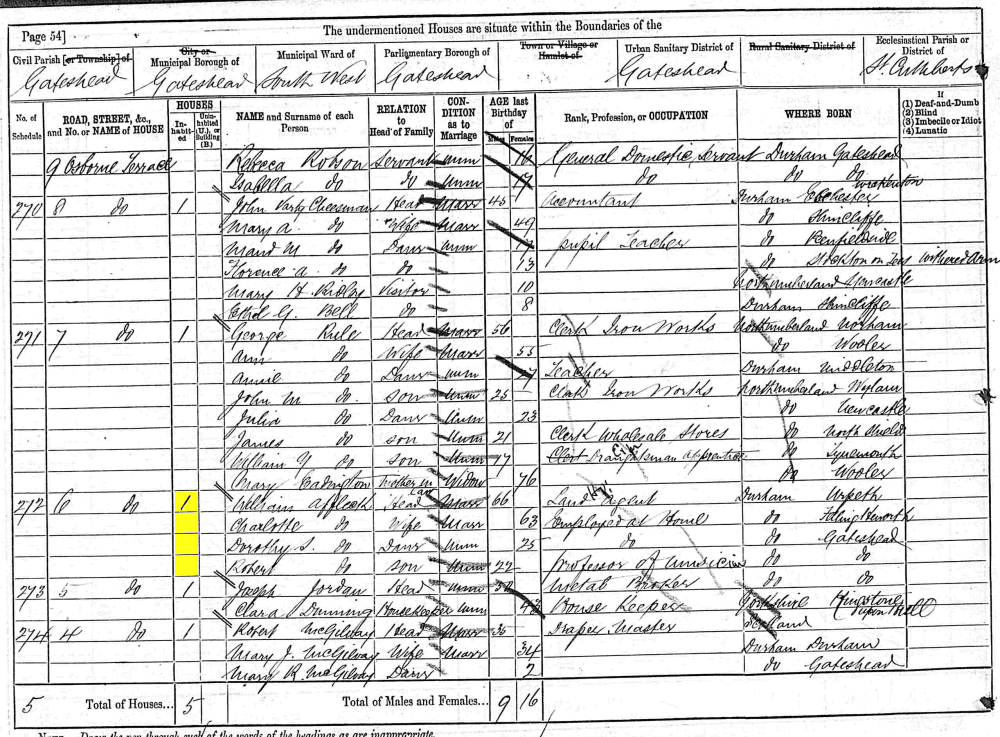 The undermentioned Houses are situate within the Boundaries of the
Page 54]
Civil Parish [or Township] of
City or Municipal Borough of
Municipal Ward of
Parliamentary Borough of
Town or Village or Hamlet of
Urban Sanitary District of
Rural Sanitary District of
Ecclesiastical Parish or District of
Gateshead Gateshead South West Gateshead Gateshead St. Cuthberts
No. of Schedule
ROAD, STREET, &c., and No. or NAME of HOUSE
HOUSES
In-habit-ed
Unin-habited (U.), or Building (B.)
NAME and Surname of each Person
RELATION to Head of Family
CON-DITION as to Marriage
AGE last Birthday of
Males Females
Rank, Profession, or OCCUPATION
WHERE BORN
If
(1) Deaf-and-Dumb
(2) Blind
(3) Imbecile or Idiot
(4) Lunatic
9 Osborne Terrace Rebecca Robson Servant unm 16 General Domestic Servant Durham Gateshead
Isabella do do unm 17 do do do
270 8 do 1 John Cheesman Head Marr 45 Accountant Durham
Mary A. do Wife Marr 49 do Shincliffe
Maud M do Daur unm pupil Teacher do
Florence A. do do 13 do Stockton on Tees withered arm
Mary H Ridley Visitor 10 Northumberland Newcastle
G. Bell do 8 Durham Shincliffe
271 7 do 1 George Rule Head Marr 56 Clerk Iron Works Northumberland Norham
Ann do Wife Marr 55 do Wooler
Annie do Daur unm 27 Teacher Durham Middleton
John M do son unm 25 Clerk Iron Works Northumberland Wylam
Julia do Daur unm 23 do Newcastle
James do son unm 21 Clerk Wholesale Stores do North Shields
William Y do son unm 17 Draughtsman apprentice do Tynemouth
Mary Mother in Law Widow 76 do Wooler
272 6 do 1 William Affleck Head Marr 66 Land Agent Durham Urpeth
Charlotte do Wife Marr 63 Employed at Home do
Dorothy S. do Daur unm 25 do do Gateshead
Robert do son unm 22 Professor of do do
273 5 do 1 Joseph Jordan Head unm Metal Broker do do
Clara Dunning Housekeeper unm 43 House Keeper Yorkshire Kingstone upon Hull
274 4 do 1 Robert McGilvay Head Marr 35 Draper Master Scotland
Mary J. McGilvay Wife Marr 34 Durham Durham
Mary R. McGilvay Daur 2 do Gateshead
5 Total of Houses... 5 Total of Males and Females... 9 16
NOTE.—Draw the pen through such of the words of the headings as are inappropriate.